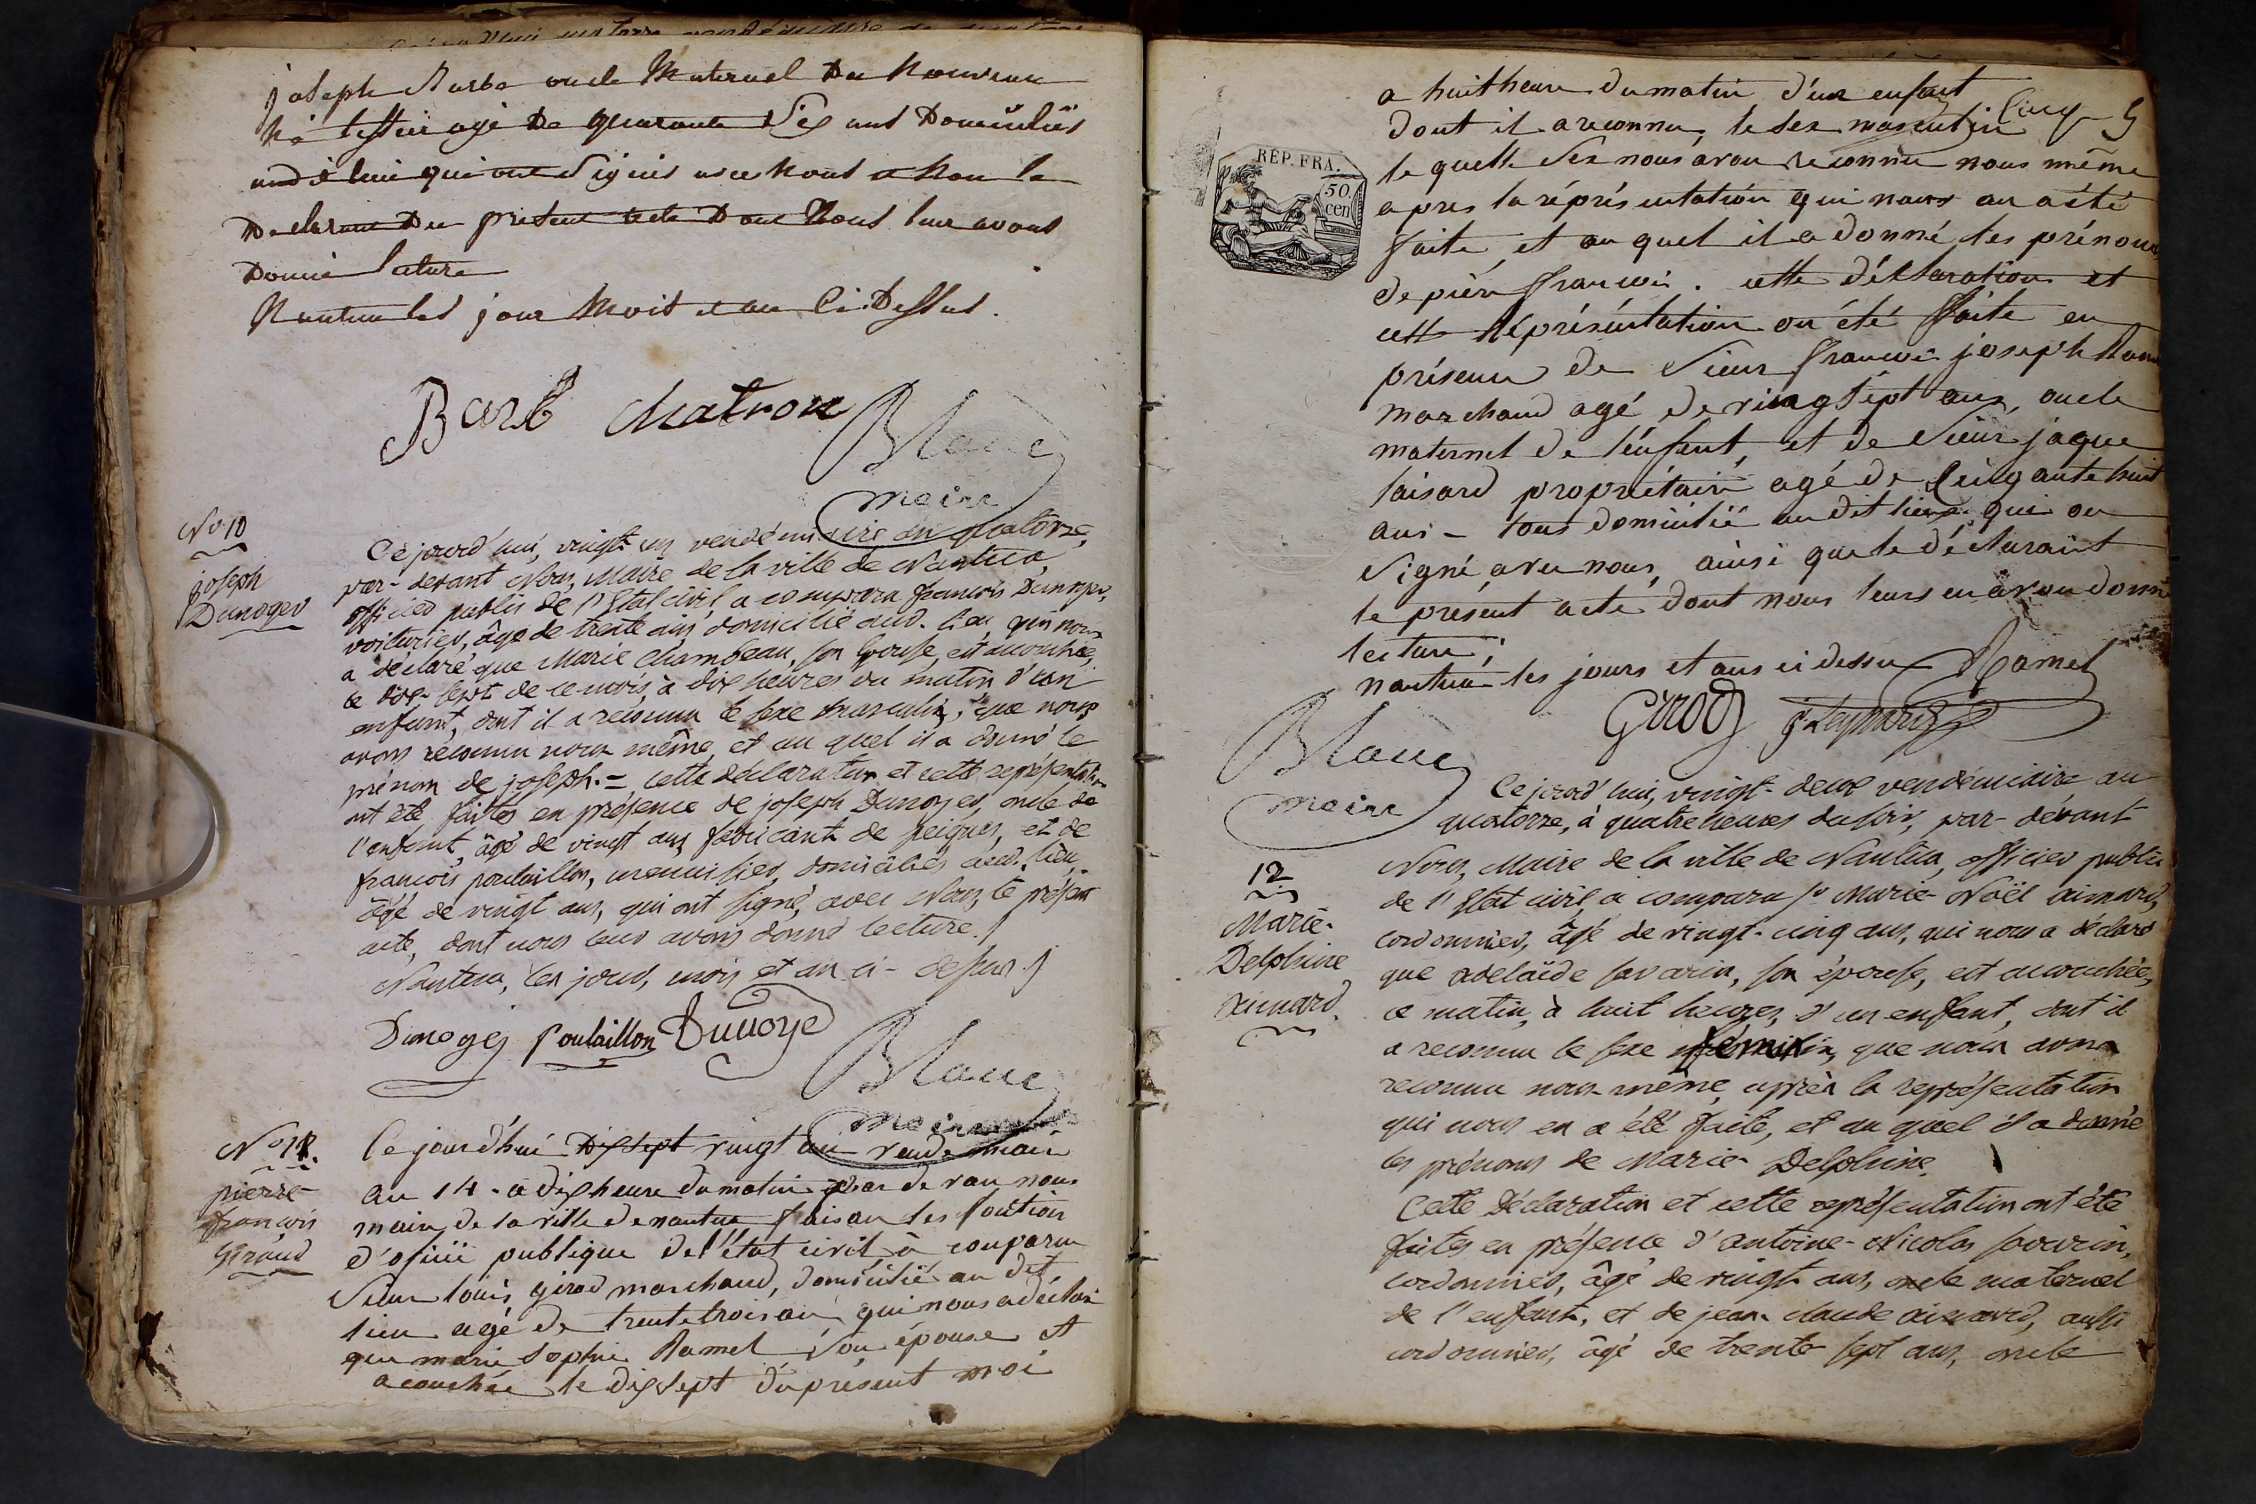 joseph Barbe oncle Maternel Du Nouveau
Né tessier agé De quarante Six ans Domiciliés
aud.t lieu qui ont Signés avec Nous et Non le
Declarant Du present acte Dont Nous leur avons
Donné lecture
Nantua les jour Mois et an Ci Dessus.
Barbe Chatron
Blanc
maire
No 10
joseph
Dunoyer
Cejourd'hui, vingt-un vendémiaire an quatorze,
par-devant Nous, Maire de la ville de Nantua,
officier public de l'Etat civil a comparu françois Dunoyer,
voiturier, âgé de trente ans domicilié aud. lieu qui nous
a déclaré que Marie Chambeau, son épouse, est accouchée,
le dix-sept de ce mois, à dix heures du matin d'un
enfant, dont il a reconnu le sexe masculin, que nous
avons reconnu nous même, et au quel il a donné le
prénom de joseph. = Cette déclaration et cette représentation
ont été faites en présence de joseph Dunoyer, oncle de
l'enfant, âgé de vingt ans, fabricant de peignes, et de
françois poulaillon, menuisier, domiciliés aud. lieu,
âgé de vingt ans, qui ont signé, avec Nous, le présent
acte, dont nous leur avons donné lecture./
Nantua, les jour, mois et an ci-dessus./
Dunoyer Poulaillon Dunoye
Blanc
maire
No 11.
pierre-
françois
Giraud
Cejourdhui Dissept vingt un vendemiair
an 14 - a dix heure du matin par de van nous
maire de la ville de nantua faisan les fontion
d'ofiiié publique de l'état civil à conparu
Sieur louis girod marchand, domicilié au dit
lieu agé de trente trois ans qui nous a déclaré
que marie Sophie Ramel Son épouse et
acouchée le dix Sept du présent moi
Cinq 5
a huit heure du matin d'un enfant
dont il a reconnu, le sex masculin
le quelle Sex nous avon reconnu nous même
apres la représentation qui nous an a été
faite, et au quel il a donné, les prénoms
de pière françois. cette déclaration et
cette Représentation on été faite en
présence de Sieur françois joseph Ram
marchand agé de vingt sept ans, oncle
maternel de l'enfant, et de Sieur jaque
laisard propriétaire agé de Cinqante huit
ans - tous domicilié au dit lieu qui on
Signé avec nous, ainsi que le déclarant
le présent acte dont nous leurs en avon donné
lecture;
nantua les jours et ans ci dessu
Ramel
Girod
Blanc
maire
RÉP. FRA.
50
cen
12
Marie-
Delphine
Aimard.
Cejourd'hui, vingt-deux vendémiaire an
quatorze, à quatre heures du soir, par-devant
Nous, Maire de la ville de Nantua, officier public
de l'Etat civil, a comparu Sr Marie-Noël aimard,
cordonnier, âgé de vingt-cinq ans, qui nous a déclaré
que adelaïde savarin, son épouse, est accouchée,
ce matin, à huit heures, d'un enfant, dont il
a reconnu le sexe féminin, que nous avons
reconnu nous même, après la représentation
qui nous en a été faite, et au quel il a donné
les prénoms de Marie-Delphine.
Cette déclaration et cette représentation ont été
faites en présence d'antoine-Nicolas savarin,
cordonnier, âgé de vingt ans, oncle maternel
de l'enfant, et de jean-claude aimard, aussi
cordonnier, âgé de trente-sept ans, oncle